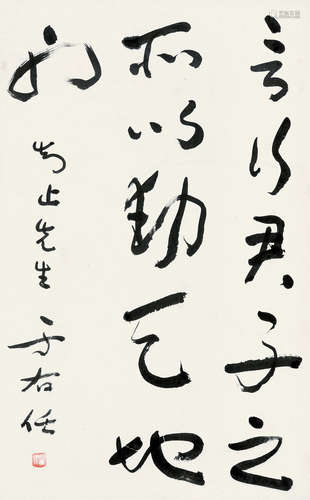 言行君子之
所以動天地
也
知止先生 于右任